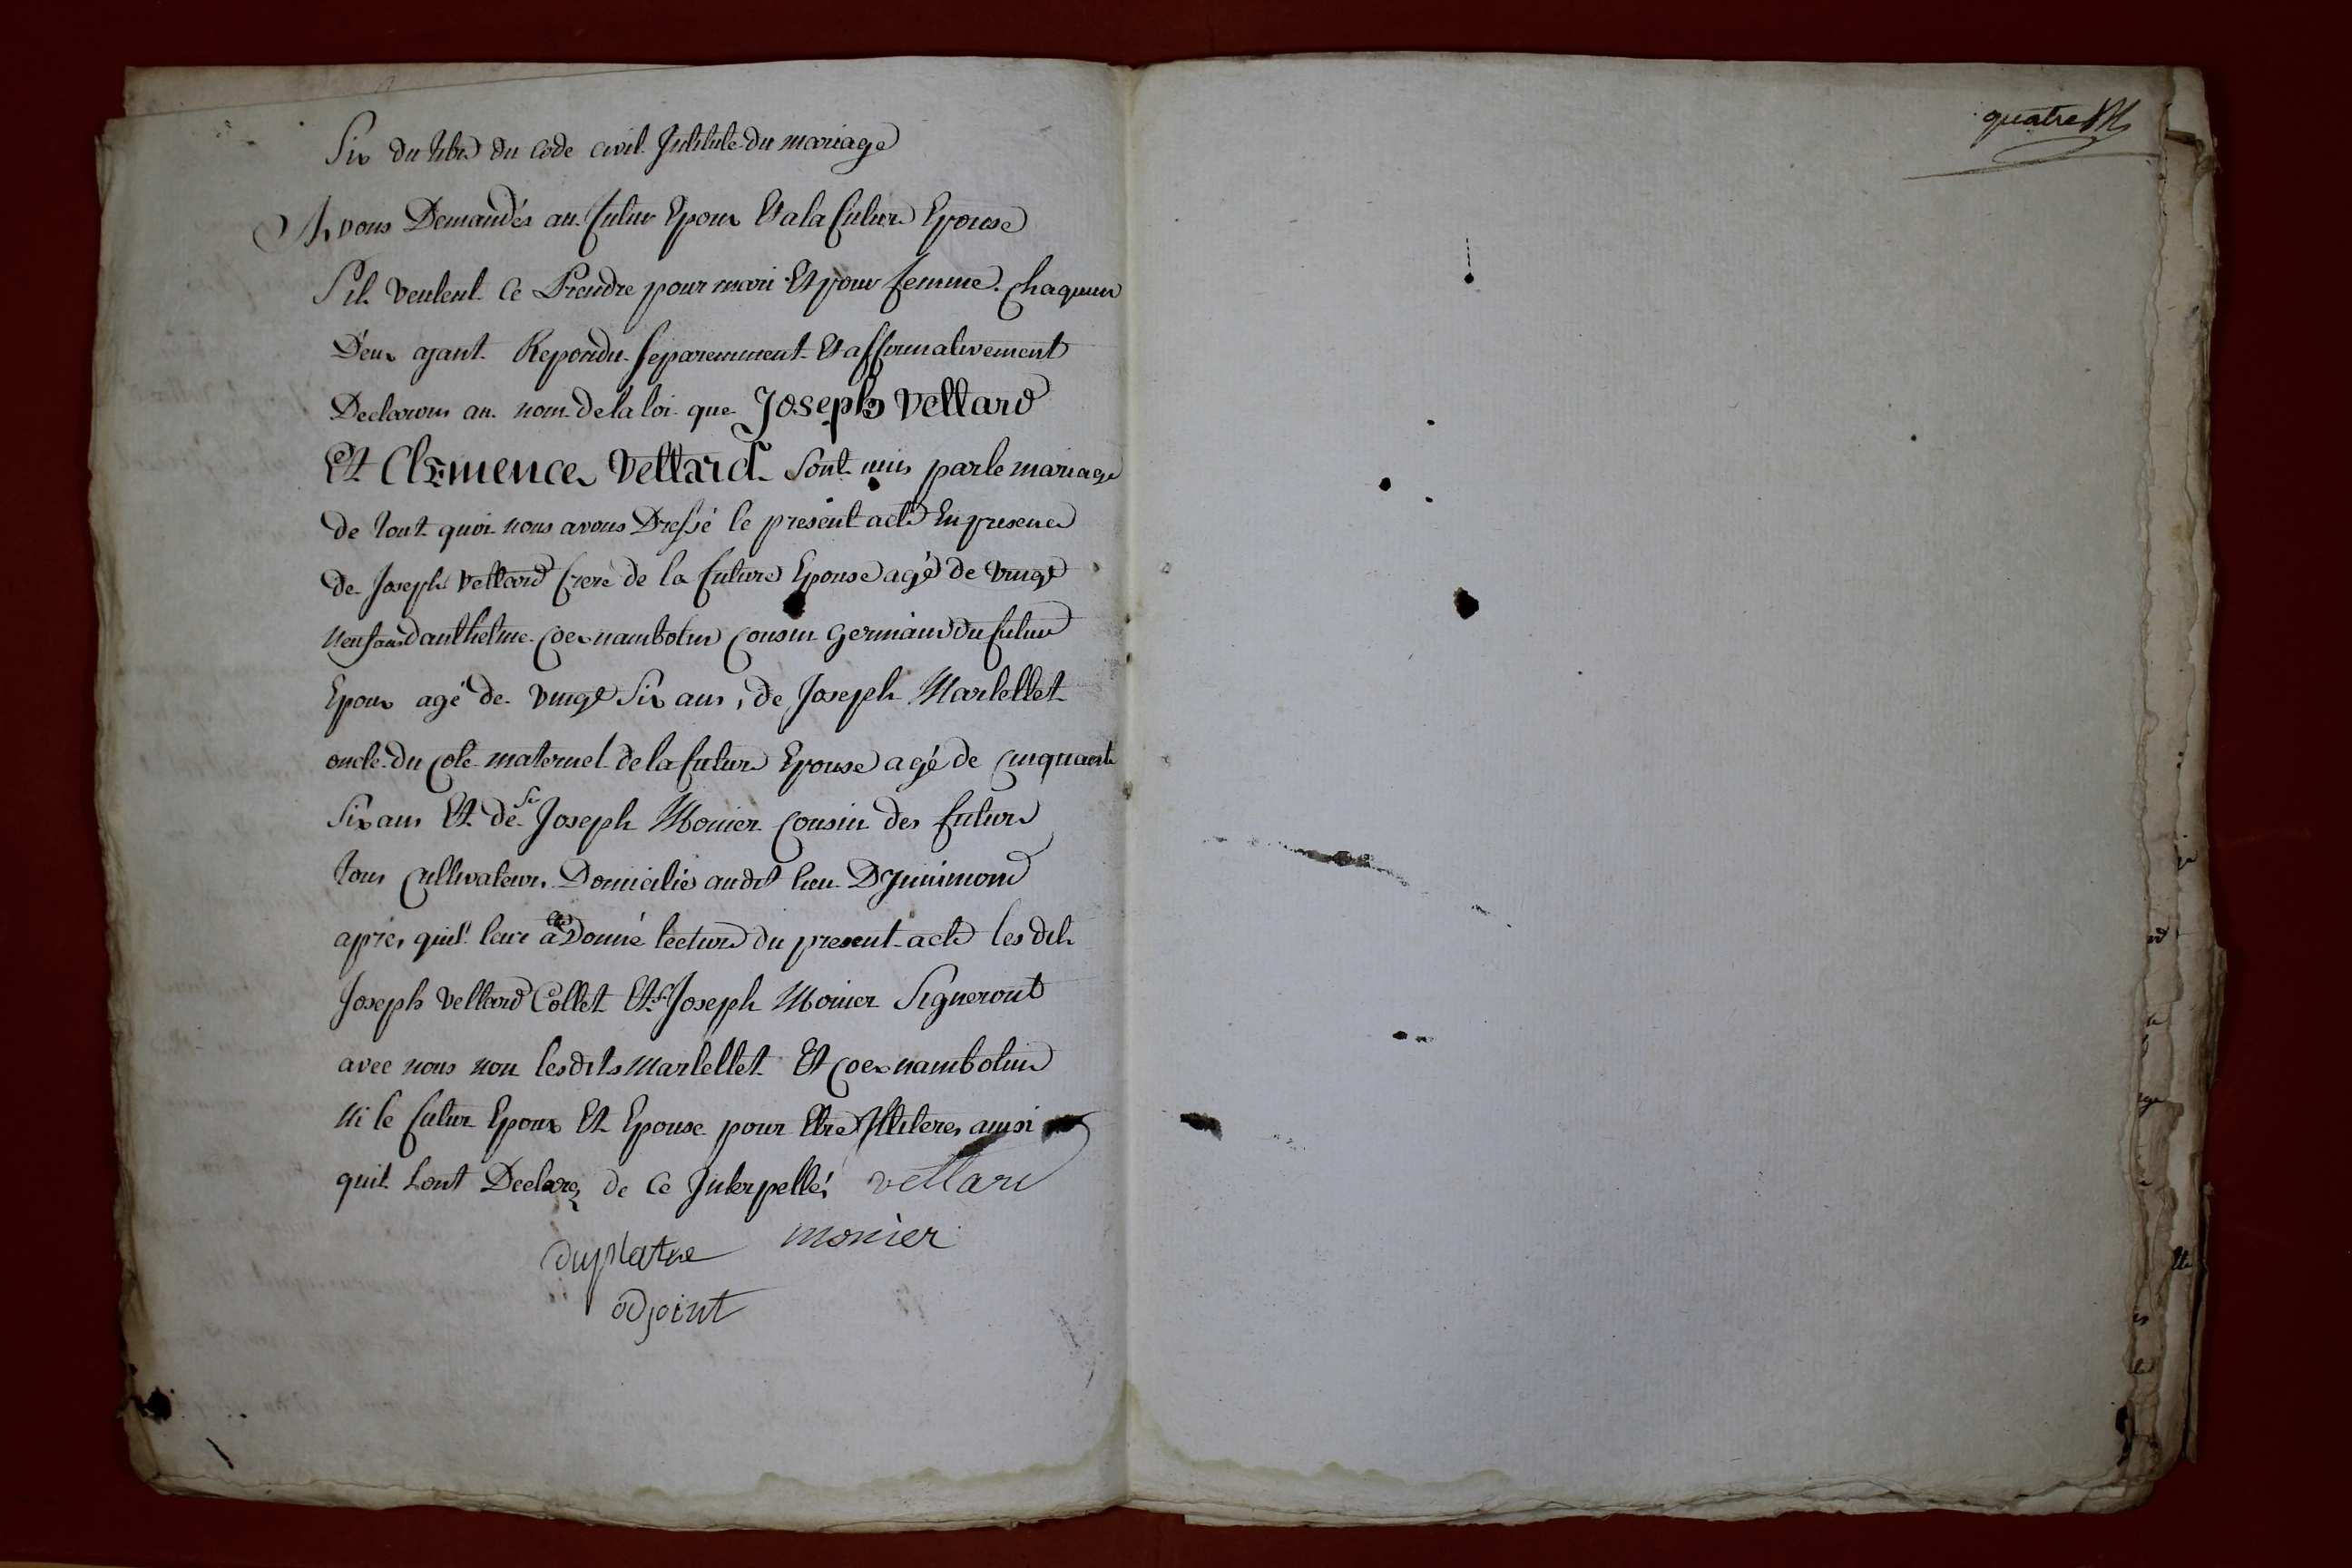 Six du titre du code civil Jntitule du mariage
Avons Demandés au futur Epoux Et a la future Epouse
S'il veulent ce Prendre pour mari Et pour femme. chaquun
D'eux ayant Repondu separemment Et affirmativement
Declarons au nom de la loi que Joseph Vettard
Et Clemence Vettard sont unis par le mariage
de tout quoi nous avons Dressé le present acte En presence
de Joseph Vettard frere de la future Epouse agé de vingt
neuf ans d'anthelme coex nambotin cousin germain du futur
Epoux agé de vingt six ans, de Joseph Martellet
oncle du coté maternel de la future Epouse agé de cinquante
six ans Et de Sr Joseph Monier cousin des futurs
tous cultivateurs Domiciliés audit lieu D'Jnnimond
après quil leur a été Donné lecture du present acte les dits
Joseph Vettard Collet Et Sr Joseph Monier Signeront
avec nous non les dits Martellet Et coex nambotin
ni le futur Epoux Et Epouse pour Etre Jlliteres ainsi
quil lont Declarez de ce Jnterpellés vettard
duplatre monier
adjoint
quatre